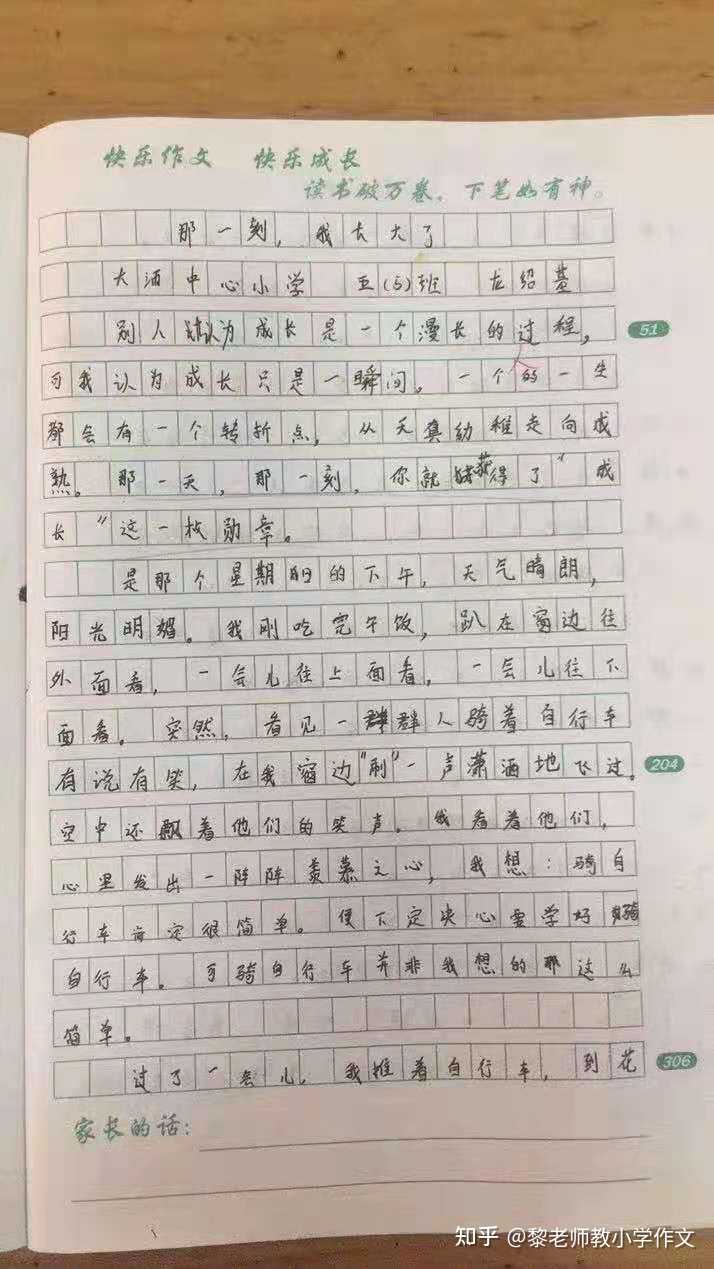 快乐作文 快乐成长
读书破万卷，下笔如有神。
那一刻，我长大了
大洒中心小学 五(5)班 龙绍基
别人认为成长是一个漫长的过程，
51
可我认为成长只是一瞬间。一个的一生
都会有一个转折点，从天真幼稚走向成
熟。那一天，那一刻，你就获得了“成
长”这一枚勋章。
是那个星期日的下午，天气晴朗，
阳光明媚。我刚吃完午饭，趴在窗边往
外面看，一会儿往上面看，一会儿往下
面看。突然，看见一群人骑着自行车
有说有笑，在我窗边“刷”一声潇洒地飞过。
204
空中还飘着他们的笑声。我看着他们，
心里发出一阵阵羡慕之心，我想：骑自
行车肯定很简单。便下定决心要学好骑
自行车。可骑自行车并非我想的那这么
简单。
过了一会儿，我推着自行车，到花
306
家长的话：
知乎 @黎老师教小学作文